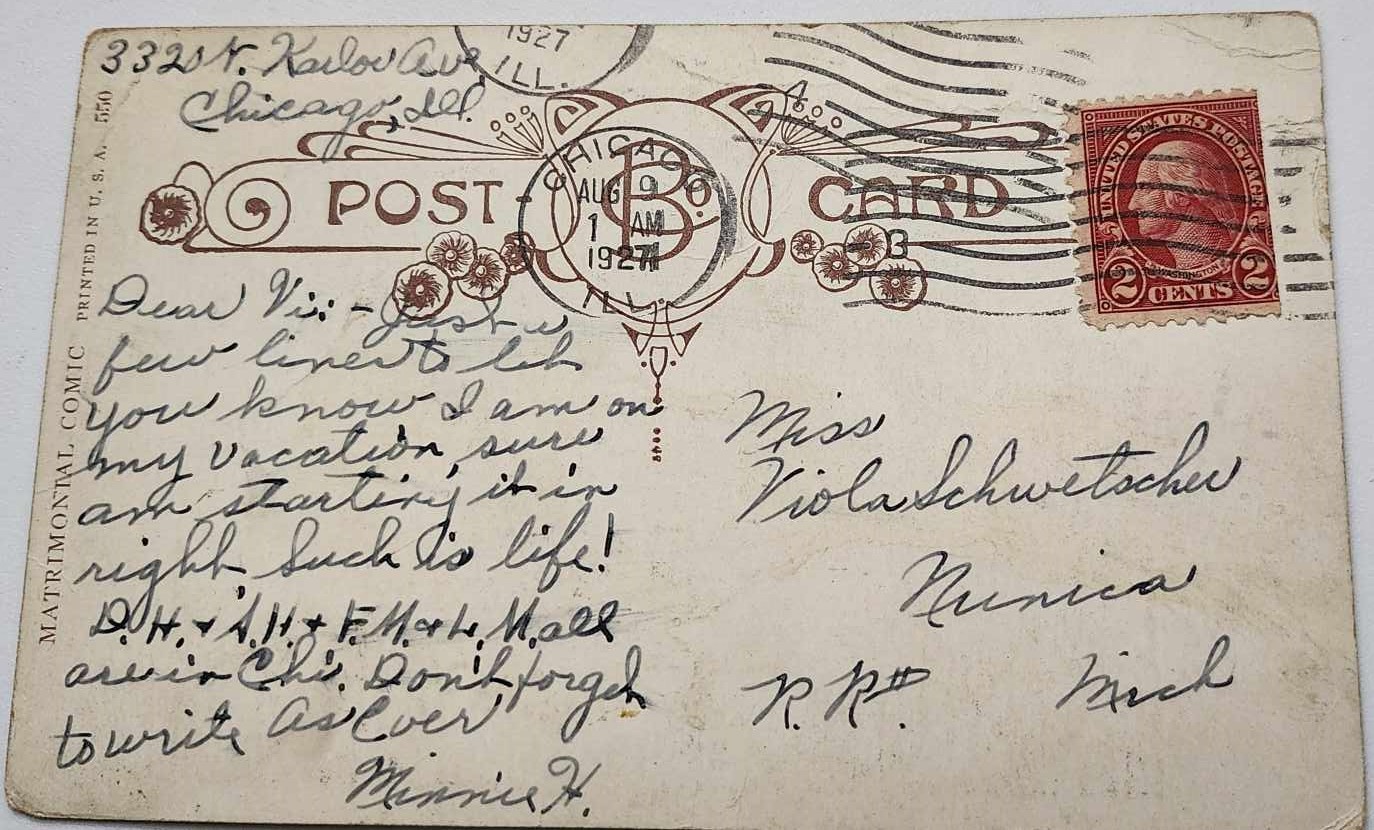 3320 N. Karlov Ave.
Chicago, Ill.
1927
ILL.
POST CARD
B Co.
CHICAGO
AUG 9
1 AM
1927
ILL.
4
3
UNITED STATES POSTAGE
WASHINGTON
2 CENTS 2
MATRIMONIAL COMIC PRINTED IN U. S. A. 550
Dear Vi: - Just a
few lines to let
you know I am on
my vacation, sure
am starting it in
right. Such is life!
D.H. + A.H. + F.M. + L.M. all
are in Chi. Don't forget
to write As Ever
Minnie H.
Miss
Viola Schwetscher
Nunica
R. R. #
Mich